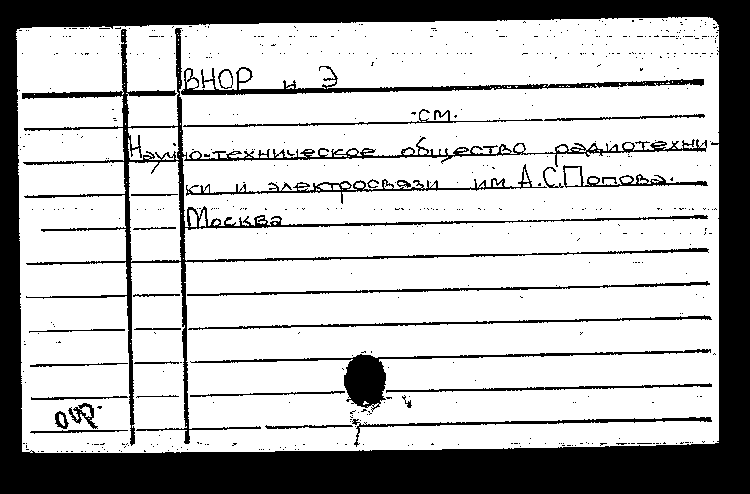 ВНОР и Э
см.
Научно-техническое общество радиотехни-
ки и электросвязи им. А.С.Попова.
Москва